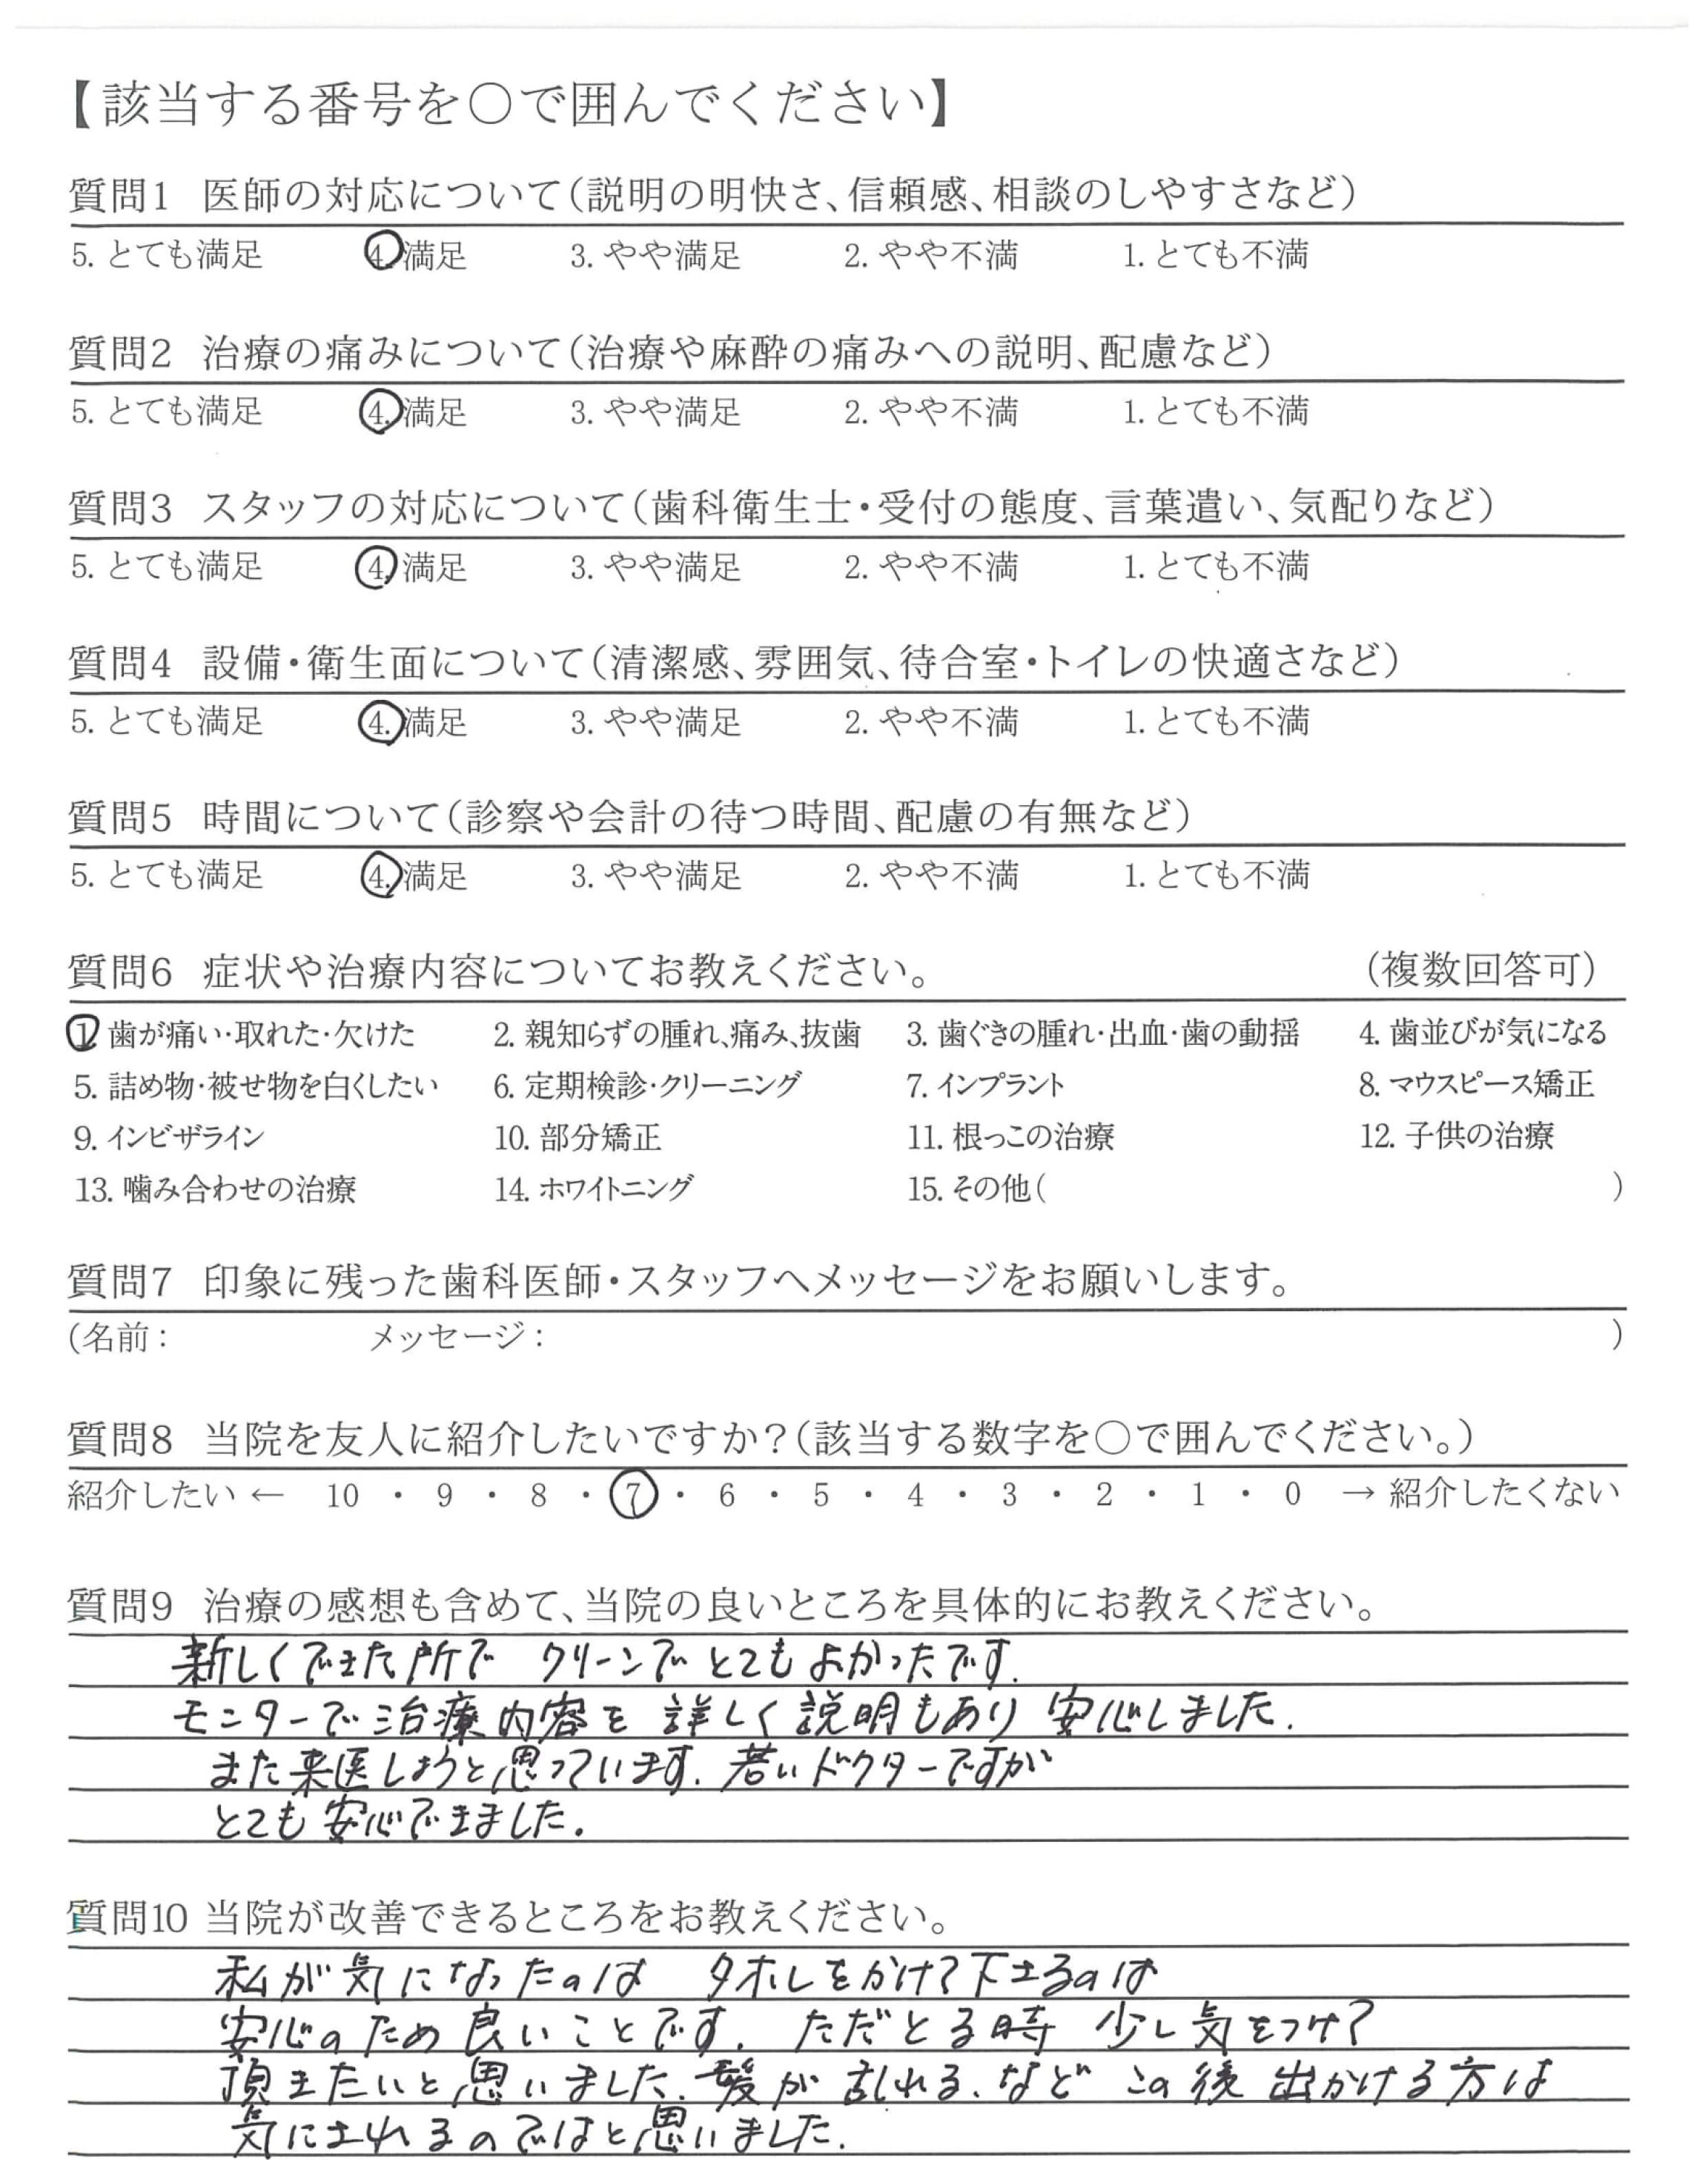 【該当する番号を○で囲んでください】
質問1 医師の対応について(説明の明快さ、信頼感、相談のしやすさなど)
5. とても満足 4. 満足 3. やや満足 2. やや不満 1. とても不満
質問2 治療の痛みについて(治療や麻酔の痛みへの説明、配慮など)
5. とても満足 4. 満足 3. やや満足 2. やや不満 1. とても不満
質問3 スタッフの対応について(歯科衛生士・受付の態度、言葉遣い、気配りなど)
5. とても満足 4. 満足 3. やや満足 2. やや不満 1. とても不満
質問4 設備・衛生面について(清潔感、雰囲気、待合室・トイレの快適さなど)
5. とても満足 4. 満足 3. やや満足 2. やや不満 1. とても不満
質問5 時間について(診察や会計の待つ時間、配慮の有無など)
5. とても満足 4. 満足 3. やや満足 2. やや不満 1. とても不満
質問6 症状や治療内容についてお教えください。 (複数回答可)
1. 歯が痛い・取れた・欠けた 2. 親知らずの腫れ、痛み、抜歯 3. 歯ぐきの腫れ・出血・歯の動揺 4. 歯並びが気になる
5. 詰め物・被せ物を白くしたい 6. 定期検診・クリーニング 7. インプラント 8. マウスピース矯正
9. インビザライン 10. 部分矯正 11. 根っこの治療 12. 子供の治療
13. 噛み合わせの治療 14. ホワイトニング 15. その他( )
質問7 印象に残った歯科医師・スタッフへメッセージをお願いします。
(名前: メッセージ: )
質問8 当院を友人に紹介したいですか?(該当する数字を○で囲んでください。)
紹介したい ← 10 ・ 9 ・ 8 ・ 7 ・ 6 ・ 5 ・ 4 ・ 3 ・ 2 ・ 1 ・ 0 → 紹介したくない
質問9 治療の感想も含めて、当院の良いところを具体的にお教えください。
新しくできた所で クリーンで とてもよかったです.
モニターで治療内容を 詳しく説明もあり 安心しました.
また来医しようと思っています. 若いドクターですが
とても安心できました.
質問10 当院が改善できるところをお教えください。
私が気になったのは タオルをかけて下さるのは
安心のため良いことです. ただとる時 少し気をつけて
頂きたいと思いました. 髪が乱れる、など この後出かける方は
気にされるのではと思いました.